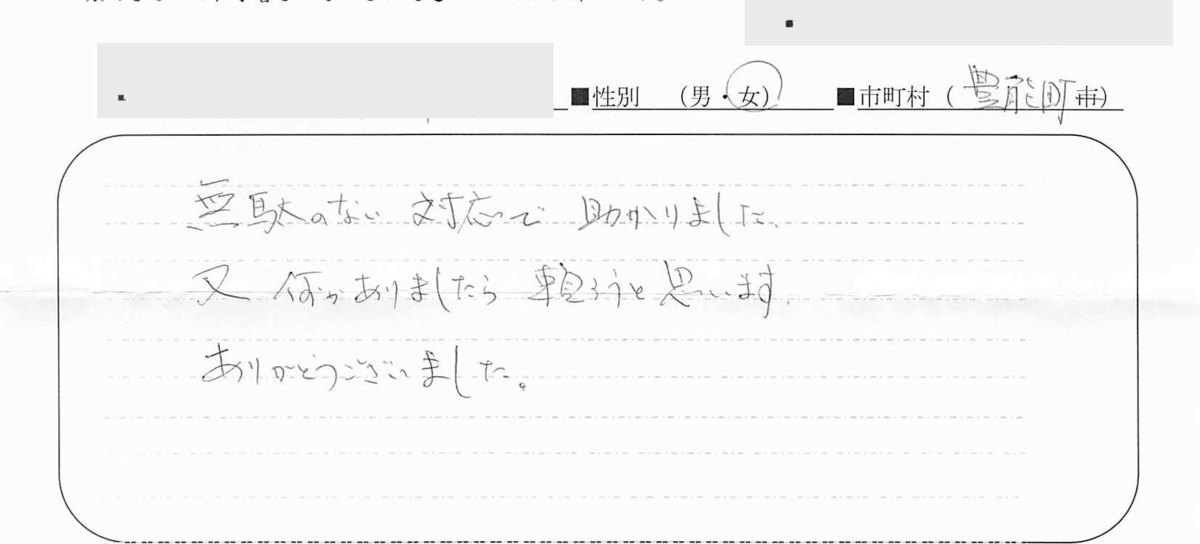 ■性別 （男・女） ■市町村（豊能町市）
無駄のない 対応で 助かりました。
又 何かありましたら 頼ろうと思います。
ありがとうございました。